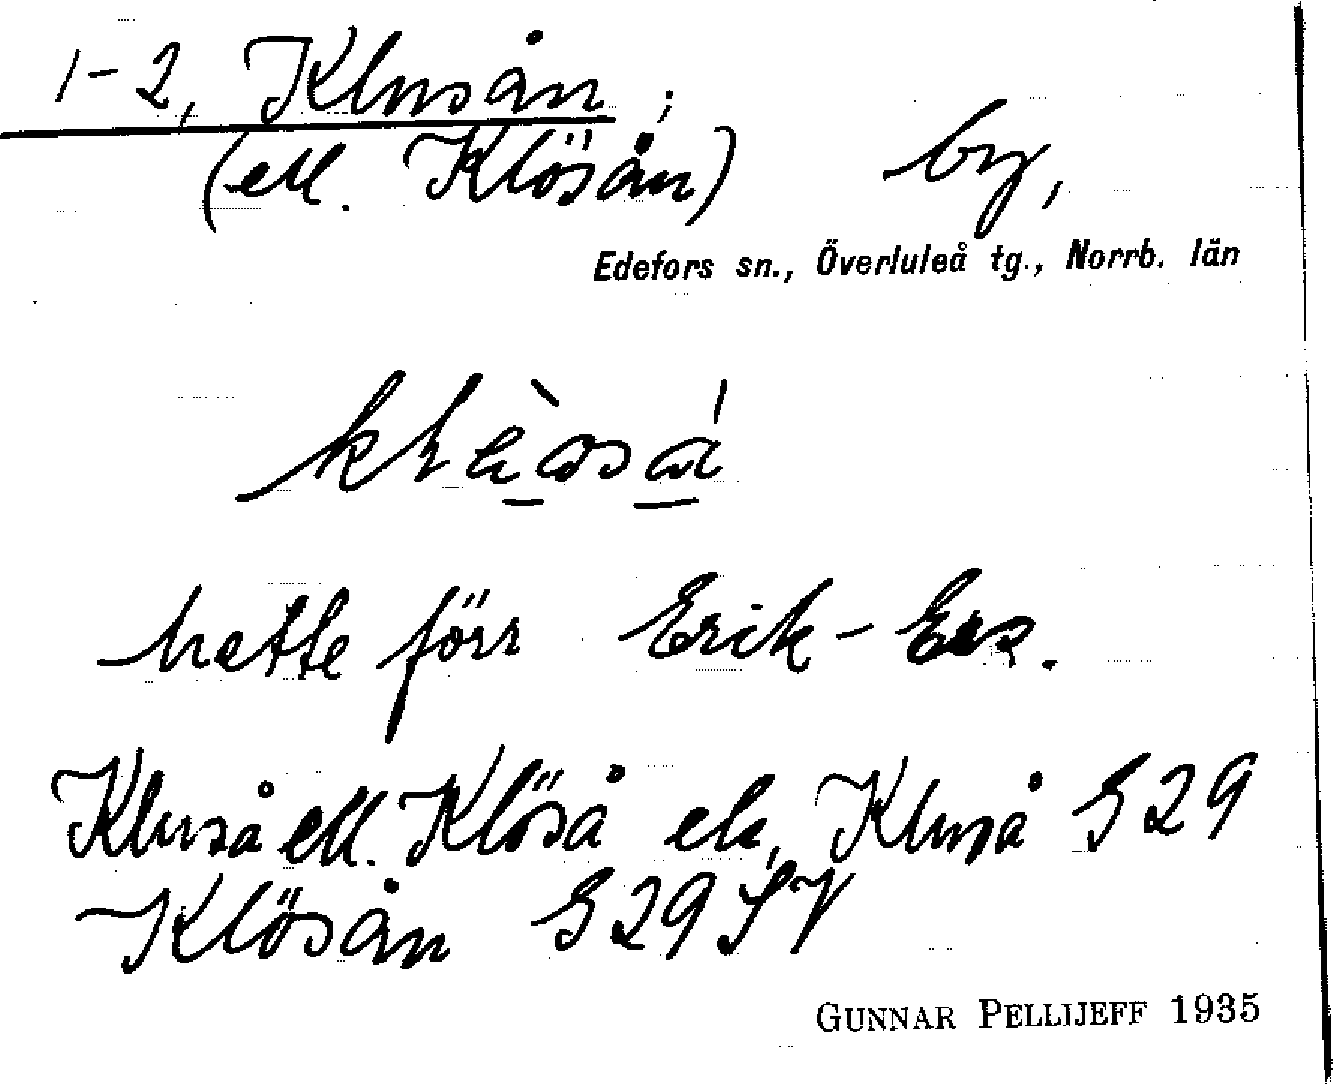 1-2, Klusån;
(ell. Klösån) by,
Edefors sn., Överluleå tg., Norrb. län
hette förr Erik-Ers.
Kluså ell. Klöså ek, Kluså S29
Klösån S29 SV
GUNNAR PELLIJEFF 1935